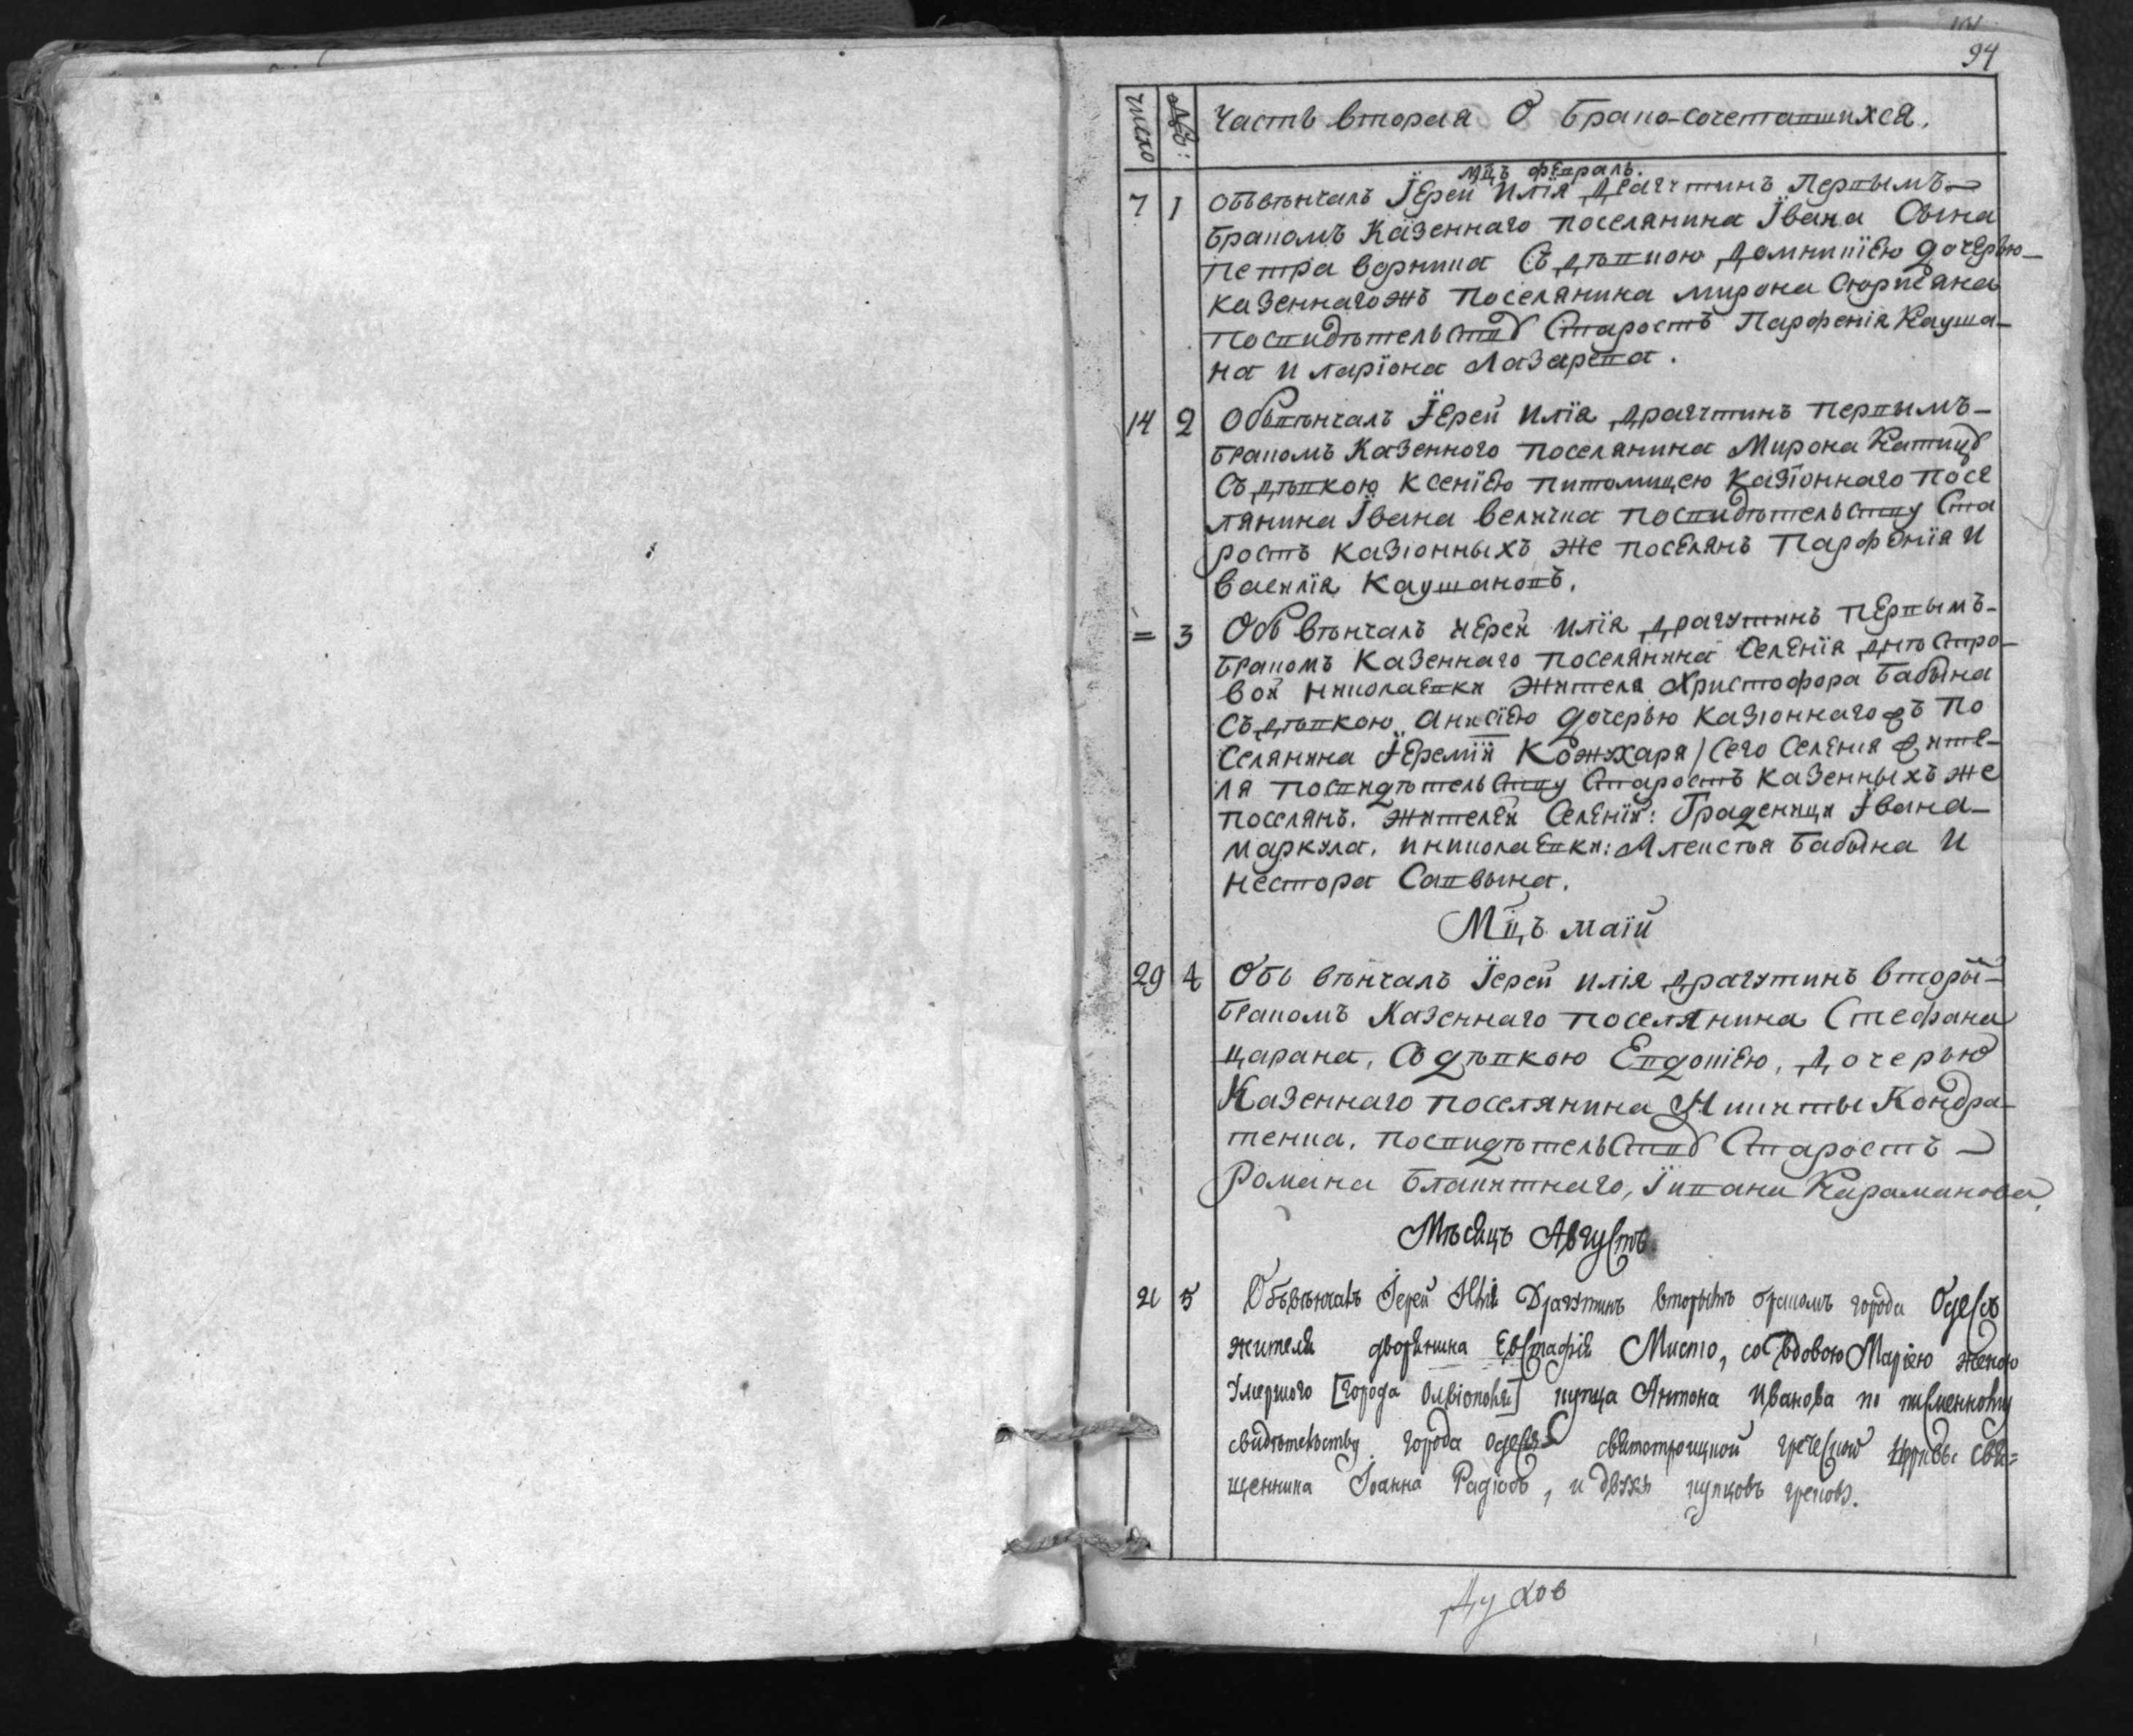 94
число
№:
Часть вторая О бракосочетавшихся.
мцъ февраль.
7 1 объвѣнчалъ Їерей Илїя Драгутинъ первымъ
бракомъ Казеннаго поселянина Їѵана Сына
петра ворника Съ дѣвкою Домникїею дочерью
казеннагожъ поселянина мирона
посвидѣтельству Старостъ Парфенія Кауша-
на и ларїона Лазарева.
14 2 Обвѣнчалъ Їерей илїа Драгутинъ первымъ
бракомъ Казенного поселянина Мирона
Съ дѣвкою ксенїею питомицею казїоннаго посе
лянина Їѵана величка посвидѣтельству Ста
ростъ казїонныхъ же поселянъ Парфенїя и
василїа Каушановъ.
= 3 Объвѣнчалъ иерей илїа драгутинъ первымъ
бракомъ казеннаго поселянина Селенїя днѣстро-
вой николаевки жителя христофора бабына
съ дѣвкою анисїею дочерью казїоннагожъ по
селянина Їеремїи Кожухаря / сего селенїя жите-
ля посвидѣтельству Старостъ казенныхъ же
поселянъ. жителей Селенїй: Граденици Їѵана
маркула, и николаевки: Алексѣя бабына и
нестора Саввына.
Мцъ маїй
29 4 Объвѣнчалъ Їерей илїя драгутинъ вторы
бракомъ Казеннаго поселянина Стефана
царана, Съ дѣвкою Евдокїею, дочерью
Казеннаго поселянина Никиты Кондра-
тенка, посвидѣтельству Старостъ
Романа блакитнаго, Караманова
Мѣсяцъ Августъ
21 5 Объвѣнчалъ Їерей Илїя Драгутинъ вторымъ бракомъ города Одессы
жителя дворянина Евстафія Мисто, со вдовою Маріею женою
умершого [города Олвіополя] купца Антона Иванова по писменному
свидѣтельству города Одессы святотроицкой греческой церкви свя=
щенника Іоанна Радіовъ, и двухъ купцовъ грековъ.